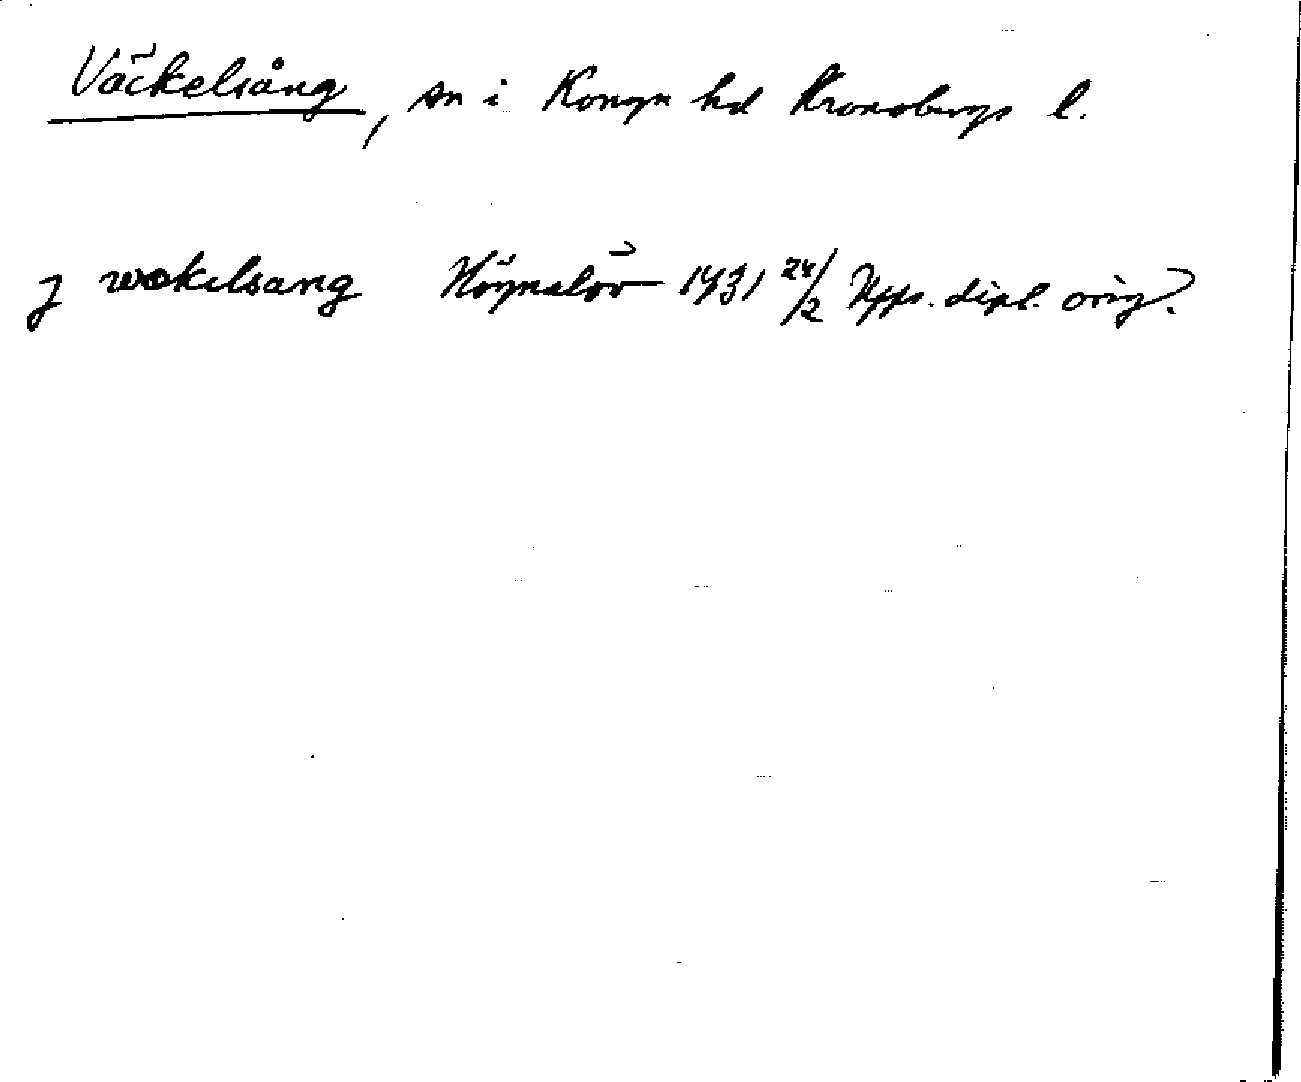 Väckelsång, sn i Konga hd Kronobergs l.
j wekelsang Höynalöv 1431 24/2 Upps. dipl. orig.